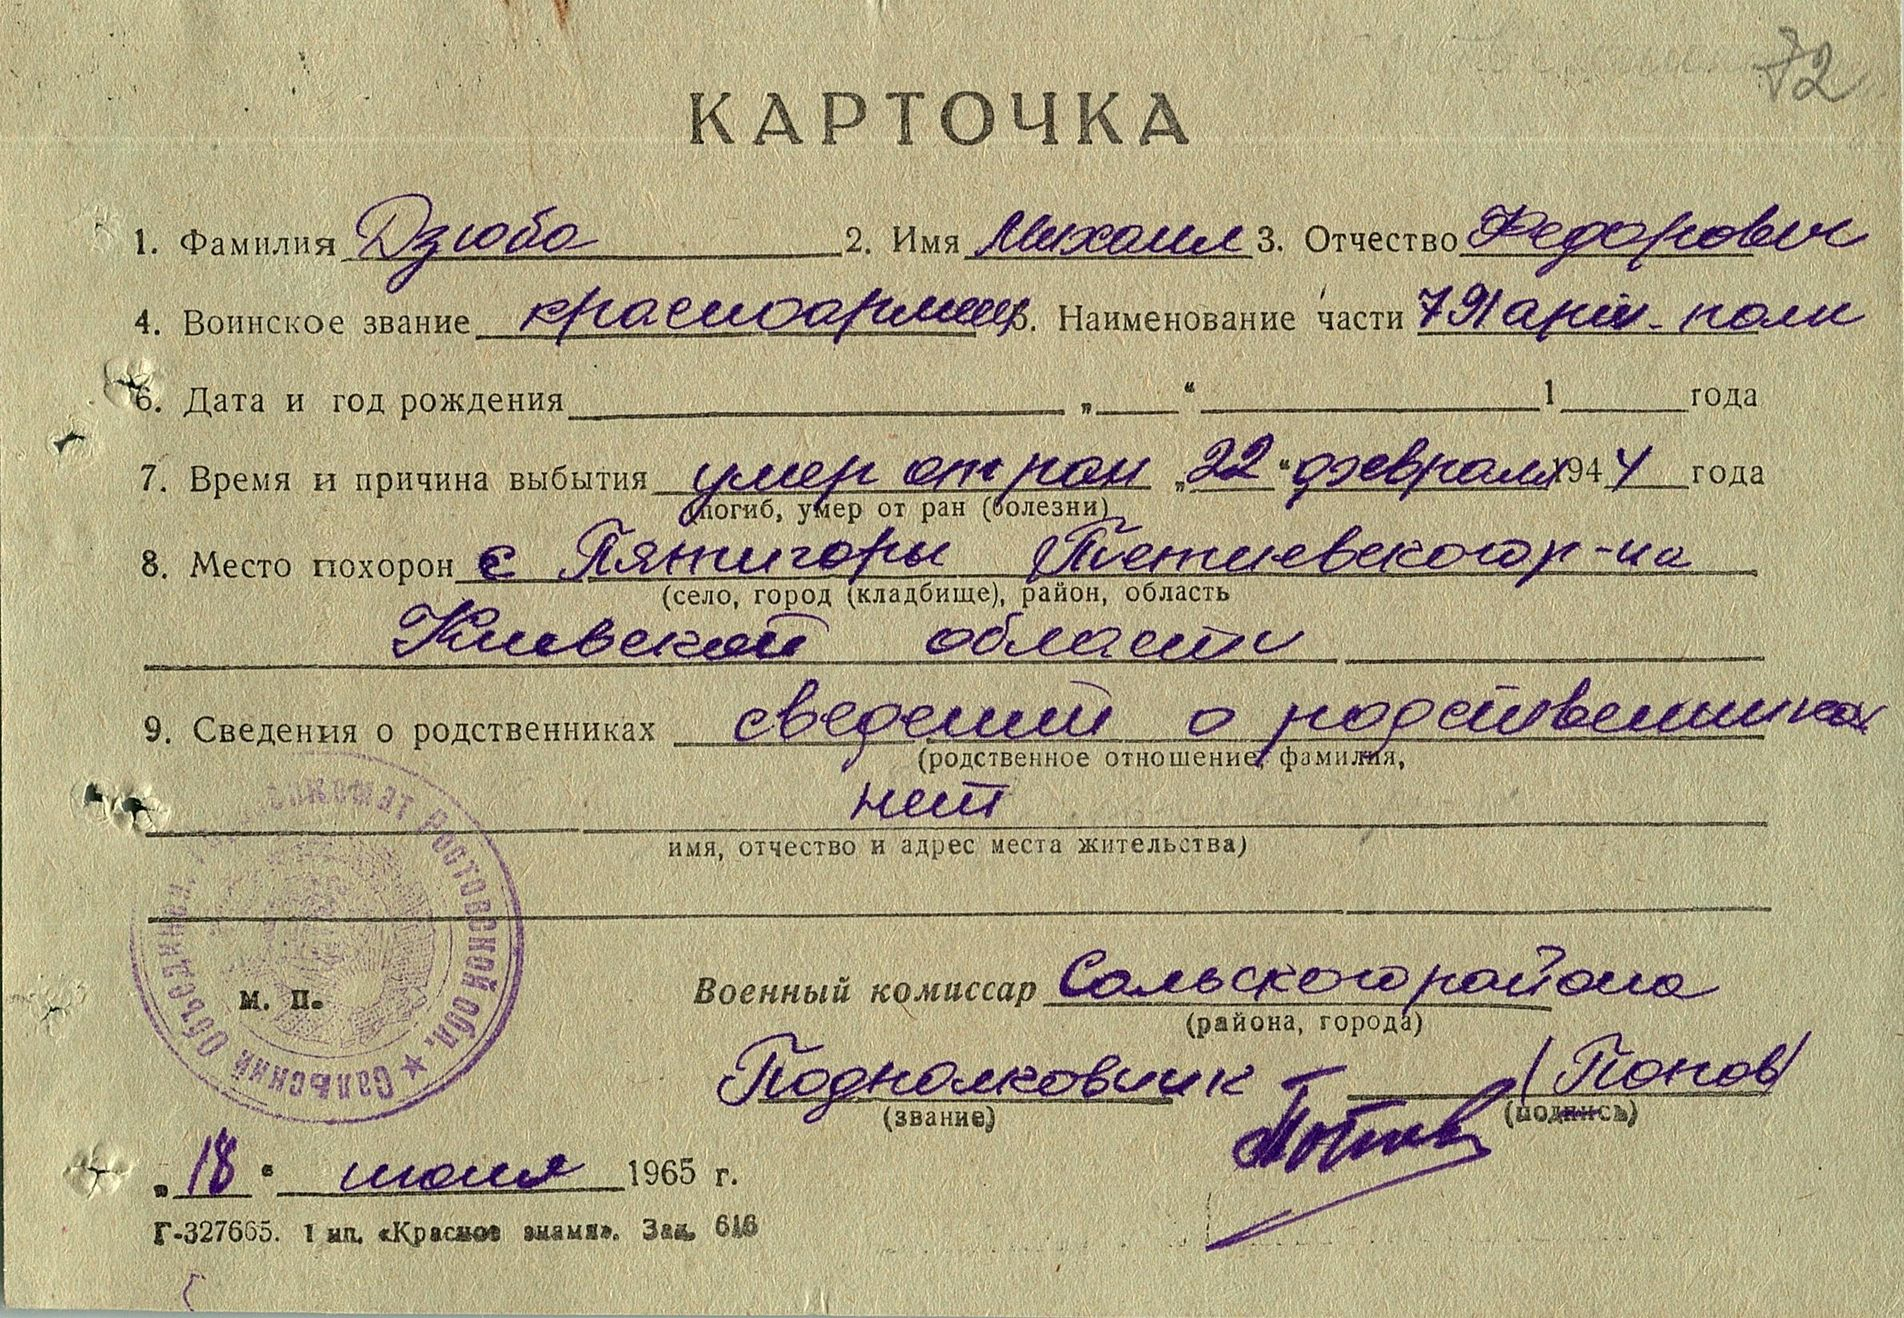 72
КАРТОЧКА
1. Фамилия Дзюба 2. Имя Михаил 3. Отчество Федорович
4. Воинское звание красноармеец 5. Наименование части 791 арт. полк
6. Дата и год рождения „ “ 1 года
7. Время и причина выбытия умер от ран „22“ февраля 1944 года
(погиб, умер от ран (болезни)
8. Место похорон с Пятигоры Тетиевского р-на
(село, город (кладбище), район, область
Киевской области
9. Сведения о родственниках сведений о родственниках
(родственное отношение, фамилия,
нет
имя, отчество и адрес места жительства)
Военный комиссар Сальского района
(района, города)
м. п.
Сальский Объединен. военкомат Ростовской обл.
Подполковник (Попов)
(звание) (подпись)
„18“ июля 1965 г.
Г-327665. 1 тип. «Красное знамя». Зак. 616